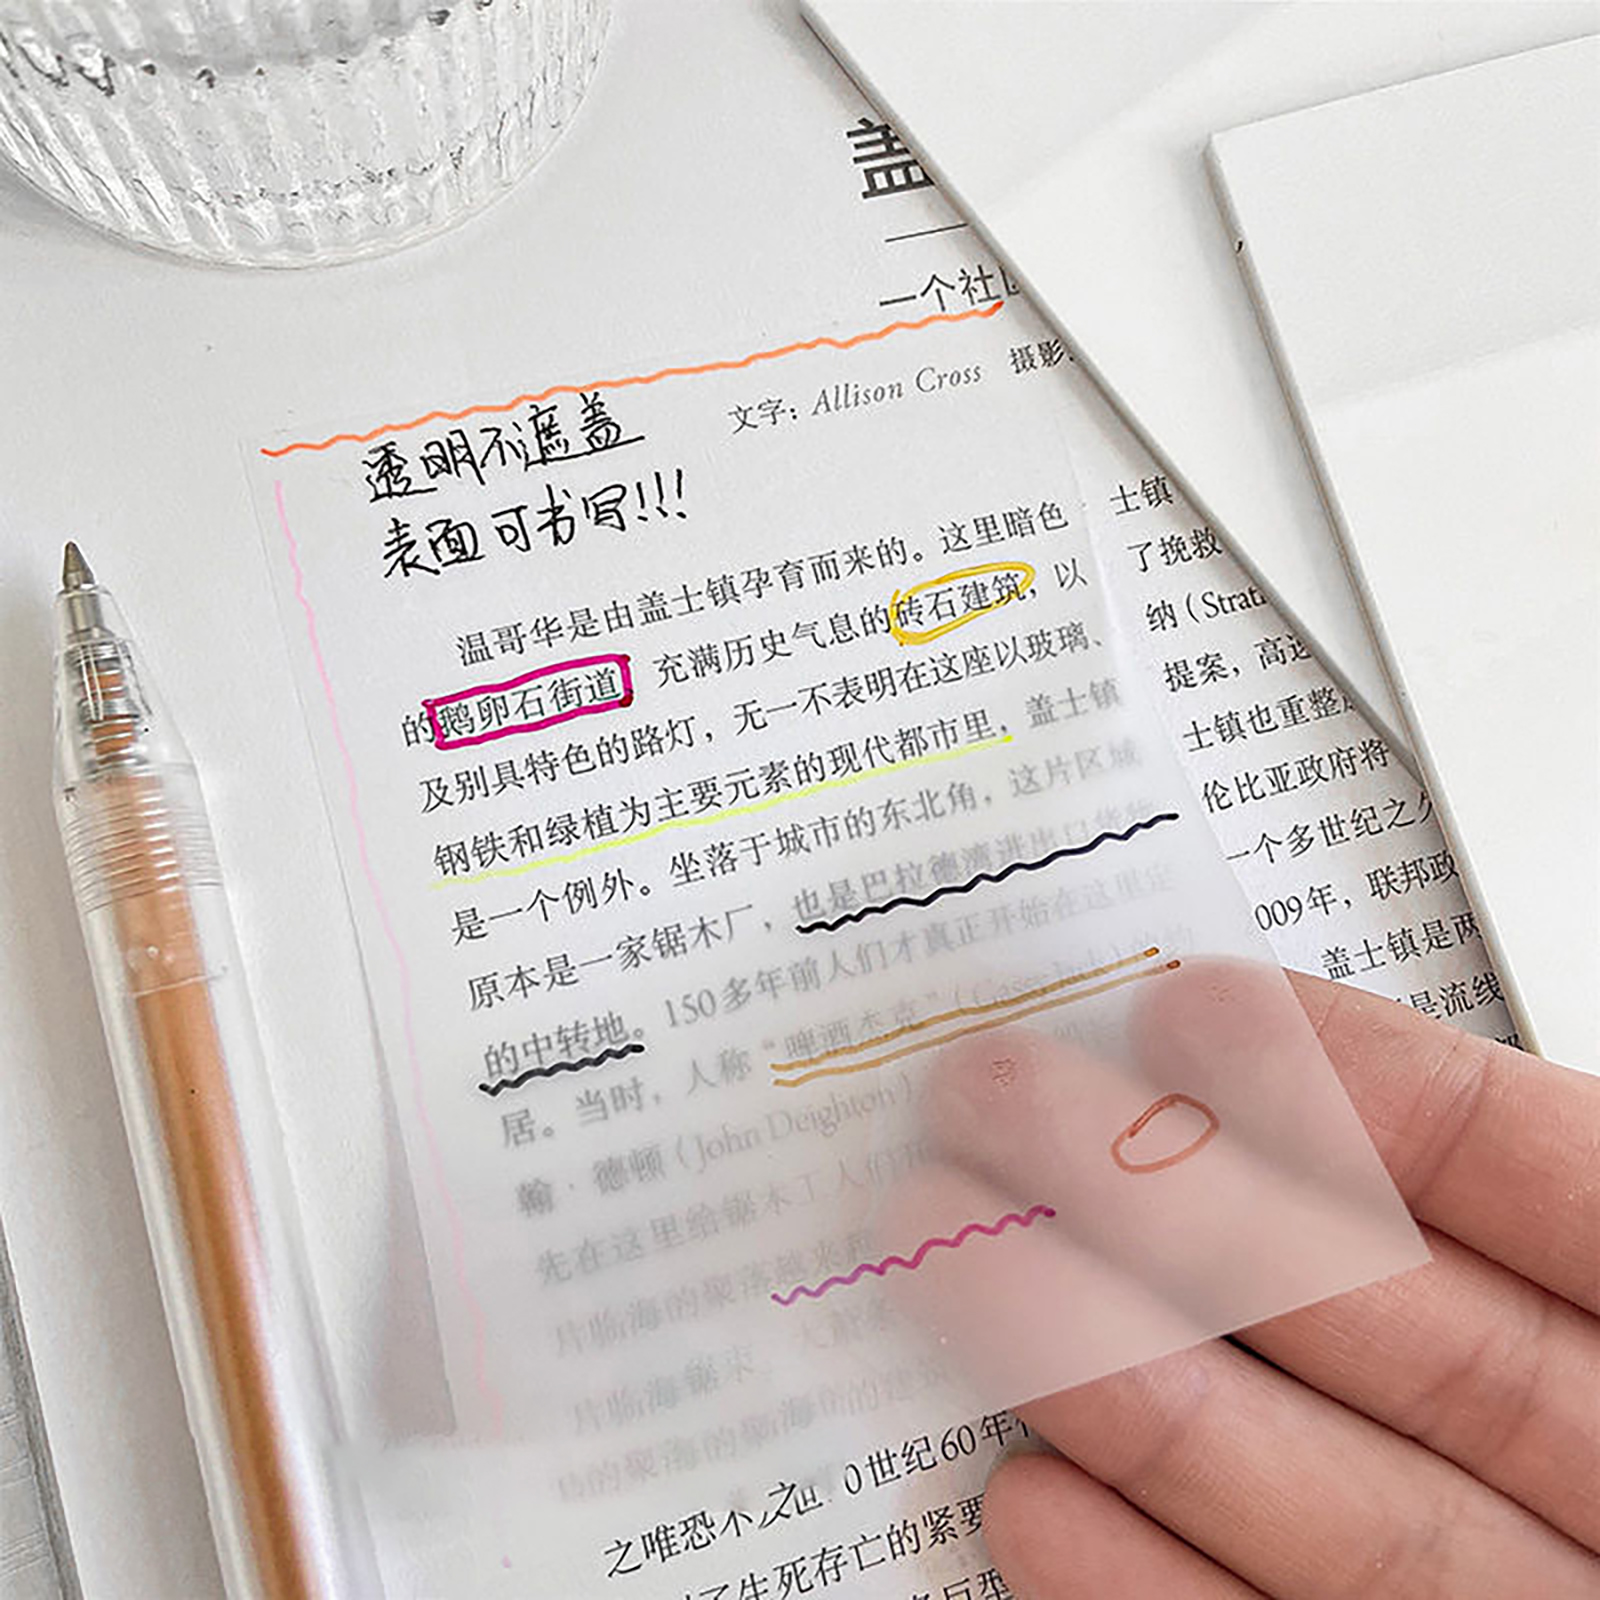 盖
一个社区
文字：Allison Cross 摄影：
透明不遮盖
表面可书写!!!
温哥华是由盖士镇孕育而来的。这里暗色
的鹅卵石街道 充满历史气息的砖石建筑，以
及别具特色的路灯，无一不表明在这座以玻璃、
钢铁和绿植为主要元素的现代都市里，盖士镇
是一个例外。坐落于城市的东北角，这片区域
原本是一家锯木厂，也是巴拉德湾进出口货物
的中转地。150多年前人们才真正开始在这里定
居。当时，人称“啤酒杰克”（Gassy Jack）的约
翰·德顿（John Deighton）
先在这里给锯木工人们
片临海的聚落越来
片临海锯末
的聚海的聚海
之唯恐不及 0世纪60年
生死存亡的紧要
巨型
士镇
了挽救
纳（Strat
提案，高速
士镇也重整
伦比亚政府将
一个多世纪之久
009年，联邦政
盖士镇是两
是流线